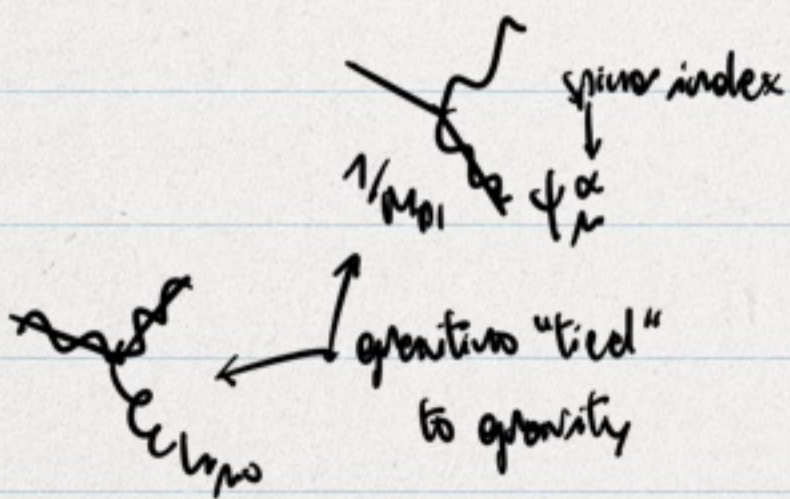 spinor index
1/M_Pl ψ_μ^α
gravitino "tied"
to gravity
h_μν